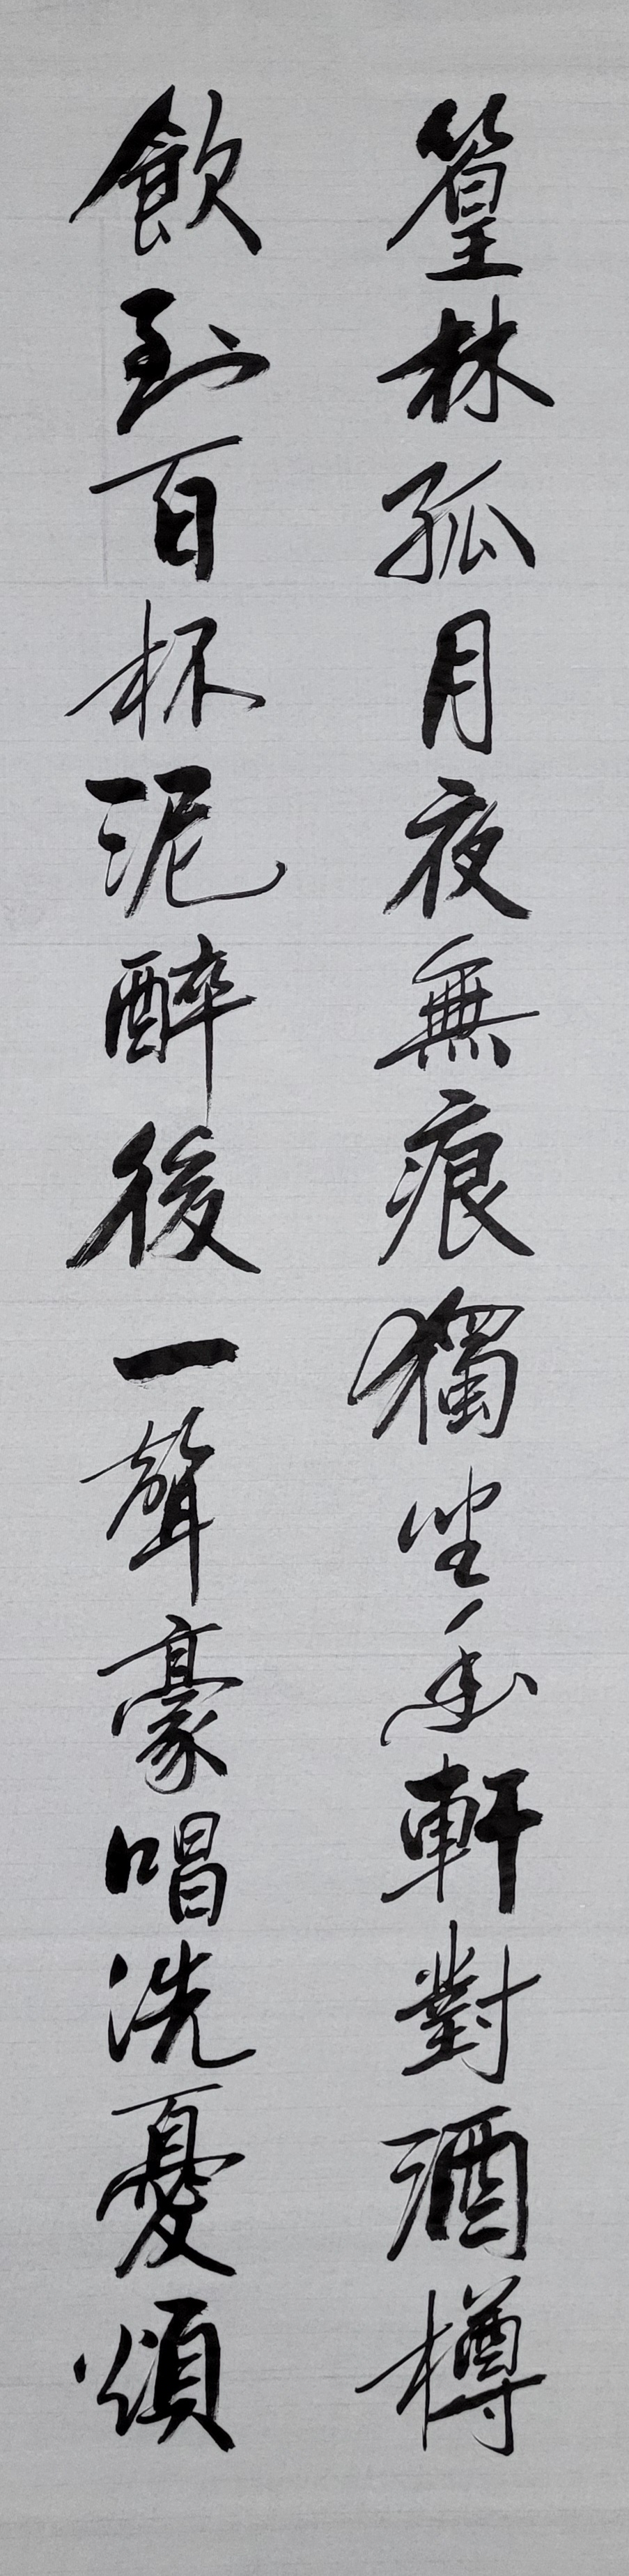 篁林孤月夜無痕獨坐香軒對酒樽
飲到百杯泥醉後一聲豪唱洗憂煩